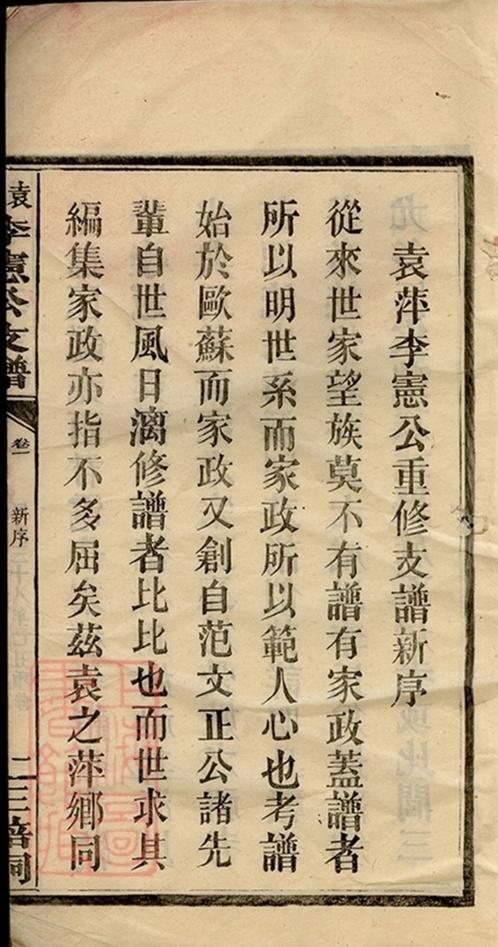 袁萍李憲公重修支譜新序
從來世家望族莫不有譜有家政蓋譜者
所以明世系而家政所以範人心也考譜
始於歐蘇而家政又創自范文正公諸先
輩自世風日漓修譜者比比也而世求其
編集家政亦指不多屈矣茲袁之萍鄉同
袁 李憲公支譜
卷一
新序